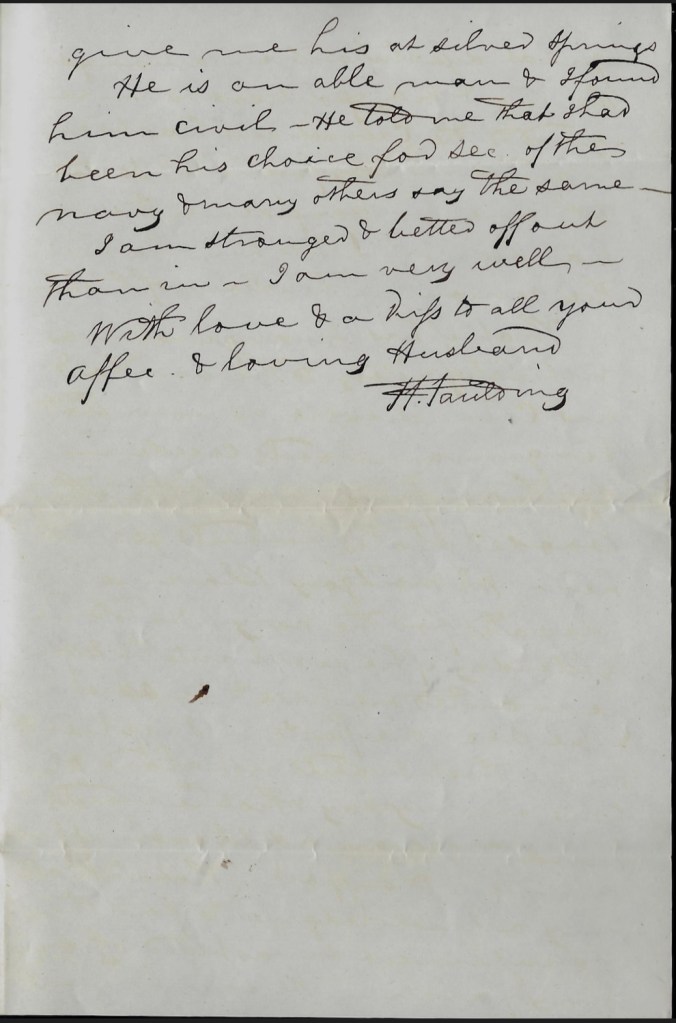 give me his at silver springs
He is an able man & I found
him civil - He told me that I had
been his choice for Sec. of the
navy & many others say the same -
I am stronger & better off out
than in - I am very well, -
With love & a kiss to all your
affec. & loving Husband
H. Paulding